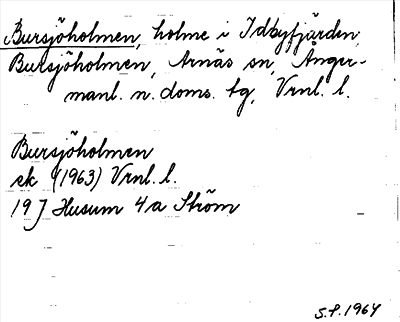 Bursjöholmen, holme i Idbyfjärden,
Bursjöholmen, Arnäs sn, Ånger-
manl. n. doms. tg, Vrnl. l.
Bursjöholmen
ek (1963) Vrnl. l.
19 J Husum 4 a Ström
S.P. 1964